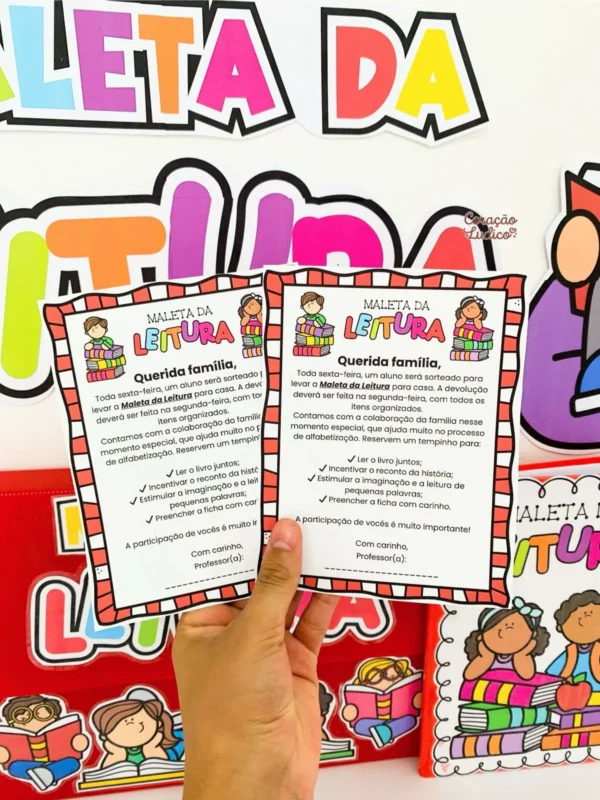 ALETA DA
LEITURA
Coração
Lúdico
MALETA DA
LEITURA
Querida família,
Toda sexta-feira, um aluno será sorteado
levar a Maleta da Leitura para casa. A devolução
deverá ser feita na segunda-feira, com
itens organizados.
Contamos com a colaboração da família
momento especial, que ajuda muito no
de alfabetização. Reservem um tempinho
✓ Ler o livro juntos;
✓ Incentivar o reconto da
✓ Estimular a imaginação e a
pequenas palavras;
✓ Preencher a ficha com
A participação de vocês é muito
Com carinho,
Professor(a):
MALETA DA
LEITURA
Querida família,
Toda sexta-feira, um aluno será sorteado para
levar a Maleta da Leitura para casa. A devolução
deverá ser feita na segunda-feira, com todos os
itens organizados.
Contamos com a colaboração da família nesse
momento especial, que ajuda muito no processo
de alfabetização. Reservem um tempinho para:
✓ Ler o livro juntos;
✓ Incentivar o reconto da história;
✓ Estimular a imaginação e a leitura de
pequenas palavras;
✓ Preencher a ficha com carinho.
A participação de vocês é muito importante!
Com carinho,
Professor(a):
LEITURA
MALETA DA
LEITURA